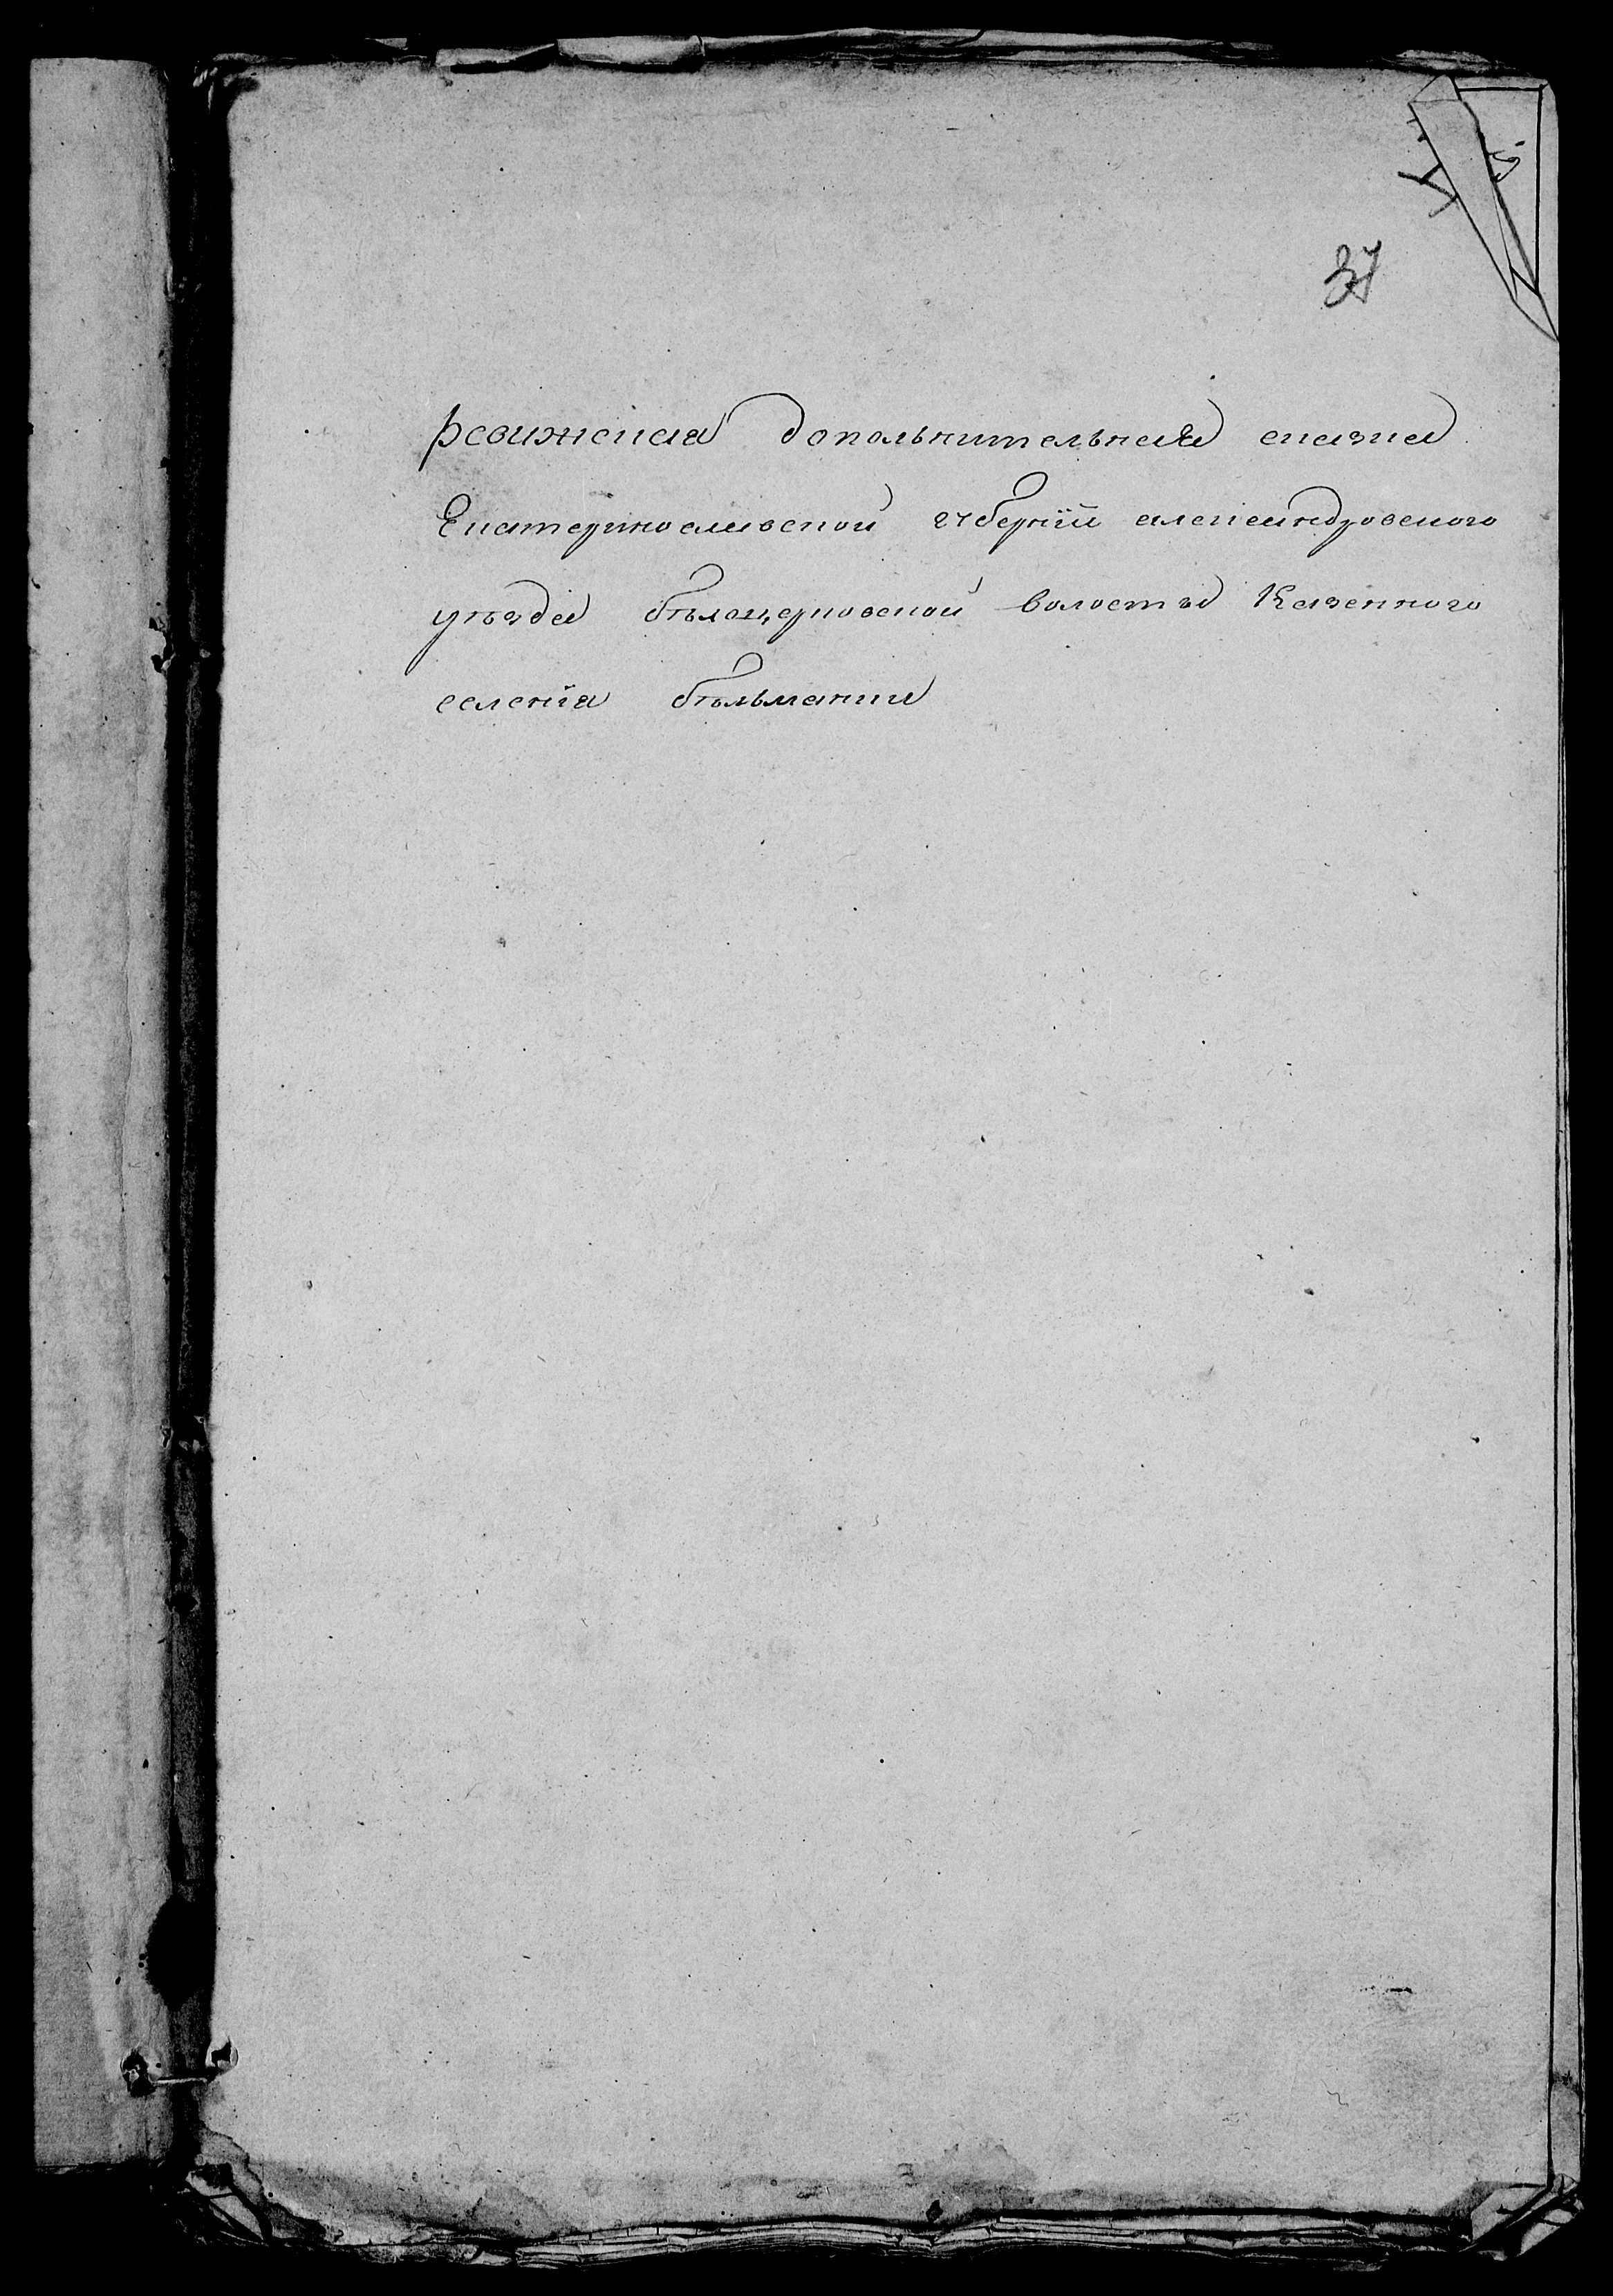 37
ревижская дополънителъная сказка
Екатериносливской губернїи александровского
уѣзда бѣлоцерковской волости Казенного
селенїя бѣлъманки